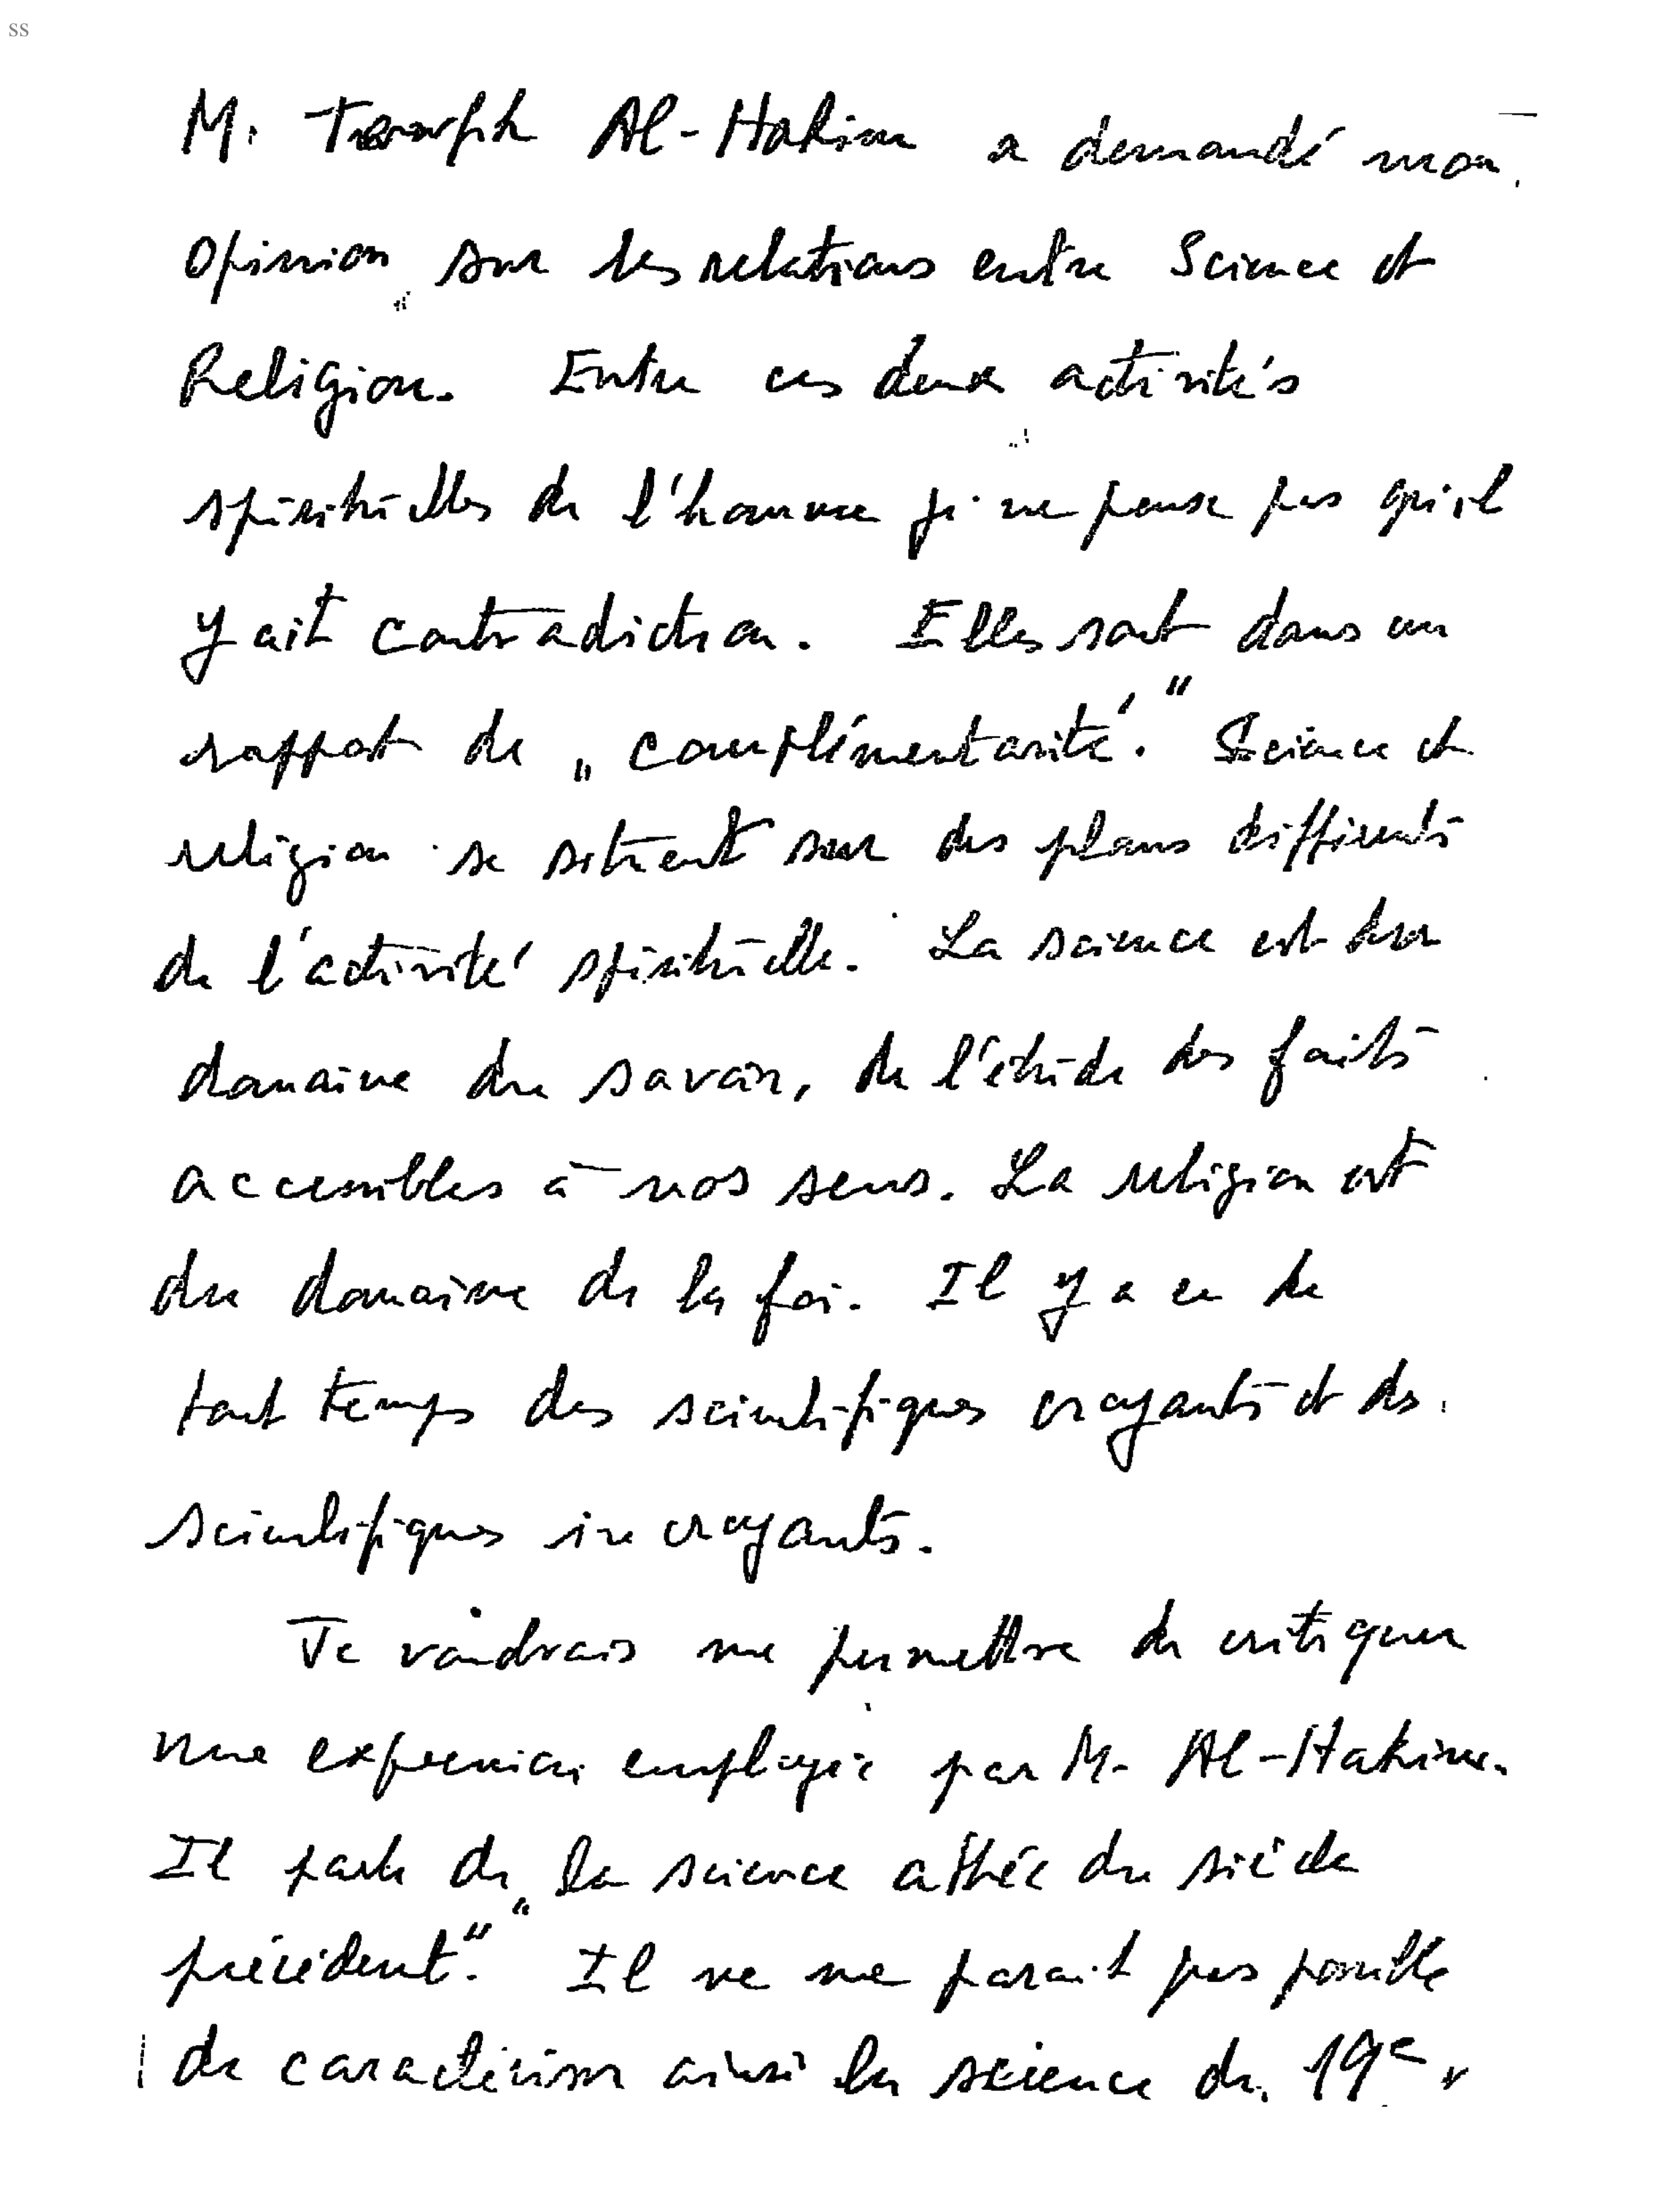 ss
M. Tewfik Al-Hakim a demandé mon
opinion sur les relations entre Science et
Religion. Entre ces deux activités
spirituelles de l'homme je ne pense pas qu'il
y ait contradiction. Elles sont dans un
rapport de „complémentarité." Science et
religion se situent sur des plans différents
de l'activité spirituelle. La science est du
domaine du savoir, de l'étude des faits
accessibles à nos sens. La religion est
du domaine de la foi. Il y a eu de
tout temps des scientifiques croyants et des
scientifiques incroyants.
Je voudrais me permettre de critiquer
une expression employée par M. Al-Hakim.
Il parle de „la science athée du siècle
précédent". Il ne me parait pas possible
de caractériser ainsi la science du 19e